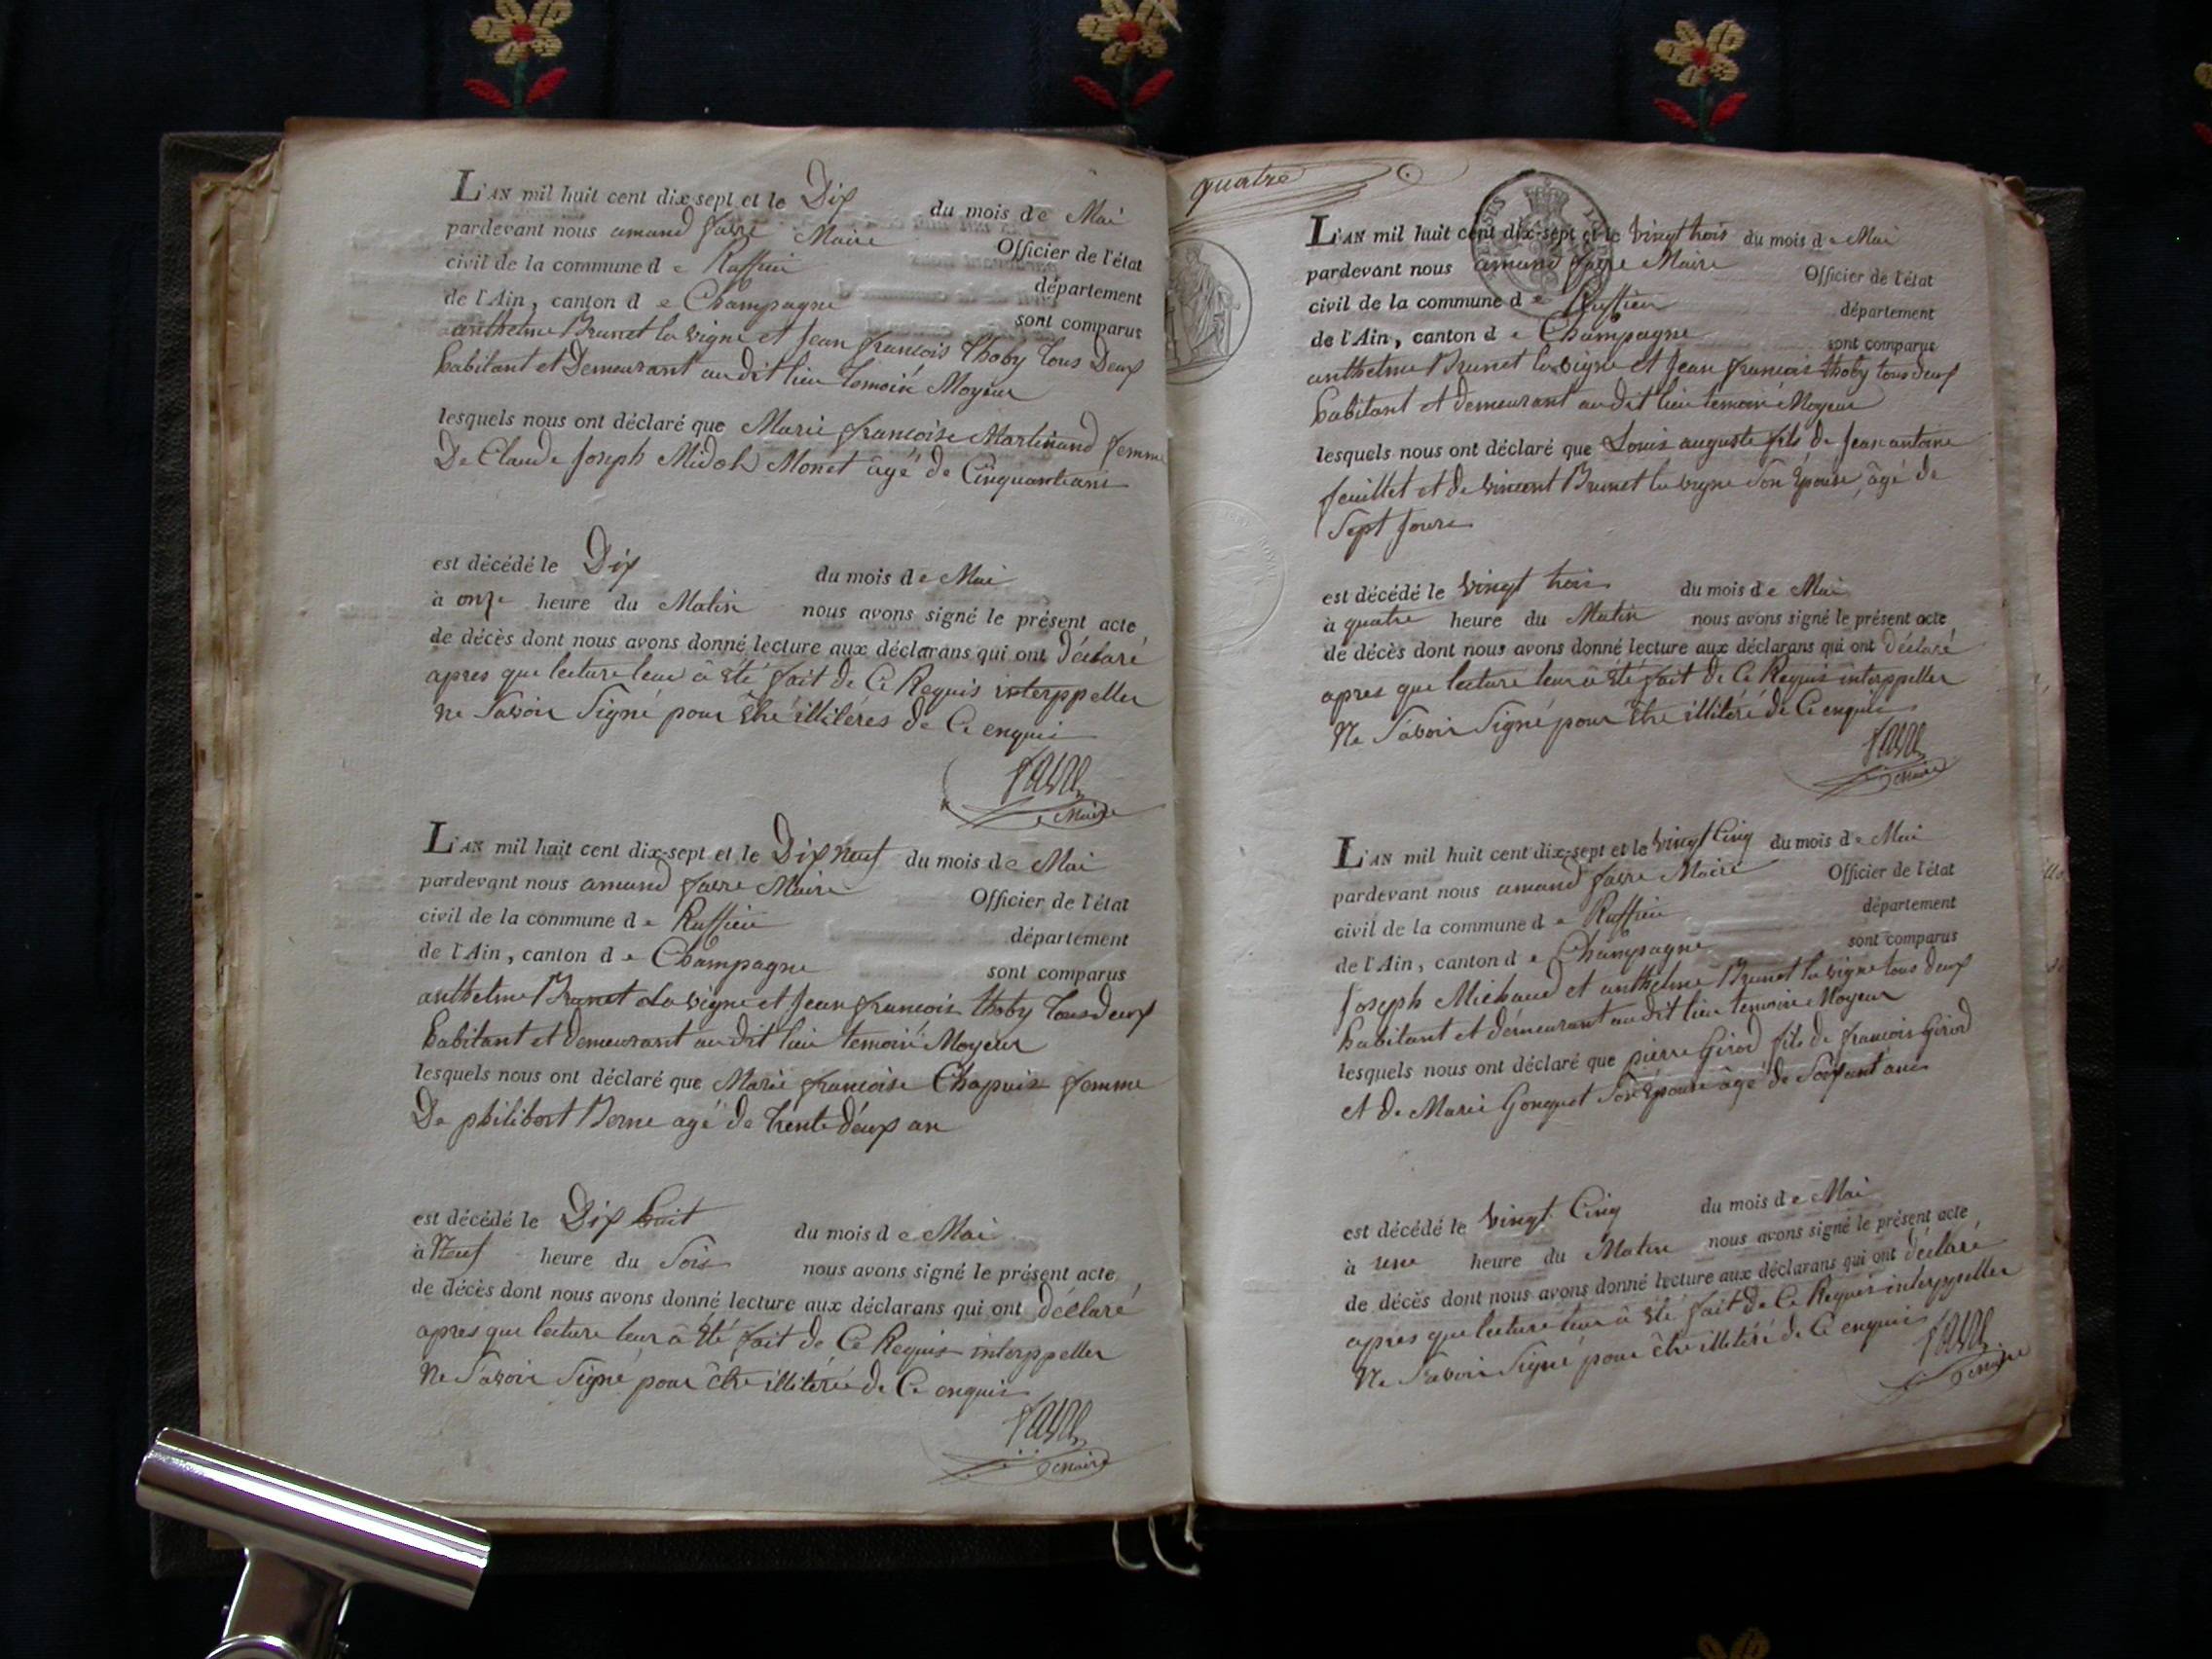 L'AN mil huit cent dix-sept et le Dix du mois de Mai
pardevant nous amand favre Maire Officier de l'état
civil de la commune de Ruffieu département
de l'Ain, canton de Champagne sont comparus
anthelme Brunet la vigne et Jean francois thoby tous Deux
habitant et Demeurant au dit lieu temoin Mayeur
lesquels nous ont déclaré que Marie francoise Martinand femme
De Claude Joseph Midol Monet âgé de Cinquante ans
est décédé le Dix du mois de Mai
à onze heure du Matin nous avons signé le présent acte
de décès dont nous avons donné lecture aux déclarans qui ont déclaré
apres que lecture leur à êté fait de Ce Requis interppeller
ne Savoir Signé pour être illitéres de Ce enquis
favre
Maire
L'AN mil huit cent dix-sept et le Dix neuf du mois de Mai
pardevant nous amand favre Maire Officier de l'état
civil de la commune de Ruffieu département
de l'Ain, canton de Champagne sont comparus
anthelme Brunet La vigne et Jean francois thoby tous deux
habitant et demeurant au dit lieu temoin Mayeur
lesquels nous ont déclaré que Marie francoise Chapuis femme
De philibert Berne agé de trente deux an
est décédé le Dix huit du mois de Mai
à Neuf heure du Soir nous avons signé le présent acte
de décès dont nous avons donné lecture aux déclarans qui ont déclaré
apres que lecture leur à êté fait de Ce Requis interppeller
Ne Savoir Signé pour être illitéré de Ce enquis
favre
maire
quatre
L'AN mil huit cent dix-sept et le vingt trois du mois de Mai
pardevant nous amand favre Maire Officier de l'état
civil de la commune de Ruffieu département
de l'Ain, canton de Champagne sont comparus
anthelme Brunet la vigne et Jean francois thoby tous deux
habitant et demeurant au dit lieu temoin Mayeur
lesquels nous ont déclaré que Louis auguste fils de Jean antoine
feuillet et de vincent Brunet la vigne Son Epouse âgé de
Sept Jours
est décédé le vingt trois du mois de Mai
à quatre heure du Matin nous avons signé le présent acte
de décès dont nous avons donné lecture aux déclarans qui ont déclaré
apres que lecture leur à êté fait de Ce Requis interppeller
Ne Savoir Signé pour être illitéré de Ce enquis
favre
maire
L'AN mil huit cent dix-sept et le vingt Cinq du mois de Mai
pardevant nous amand favre Maire Officier de l'état
civil de la commune de Ruffieu département
de l'Ain, canton de Champagne sont comparus
Joseph Michaud et anthelme Brunet la vigne tous deux
habitant et demeurant au dit lieu temoin Mayeur
lesquels nous ont déclaré que pierre Girod fils de francois Girod
et de Marie Gonguet Son Epouse âgé de Soixant ans
est décédé le vingt Cinq du mois de Mai
à une heure du Matin nous avons signé le présent acte
de décès dont nous avons donné lecture aux déclarans qui ont déclaré
apres que lecture leur à êté fait de Ce Requis interppeller
Ne Savoir Signé pour être illitéré de Ce enquis
favre
maire